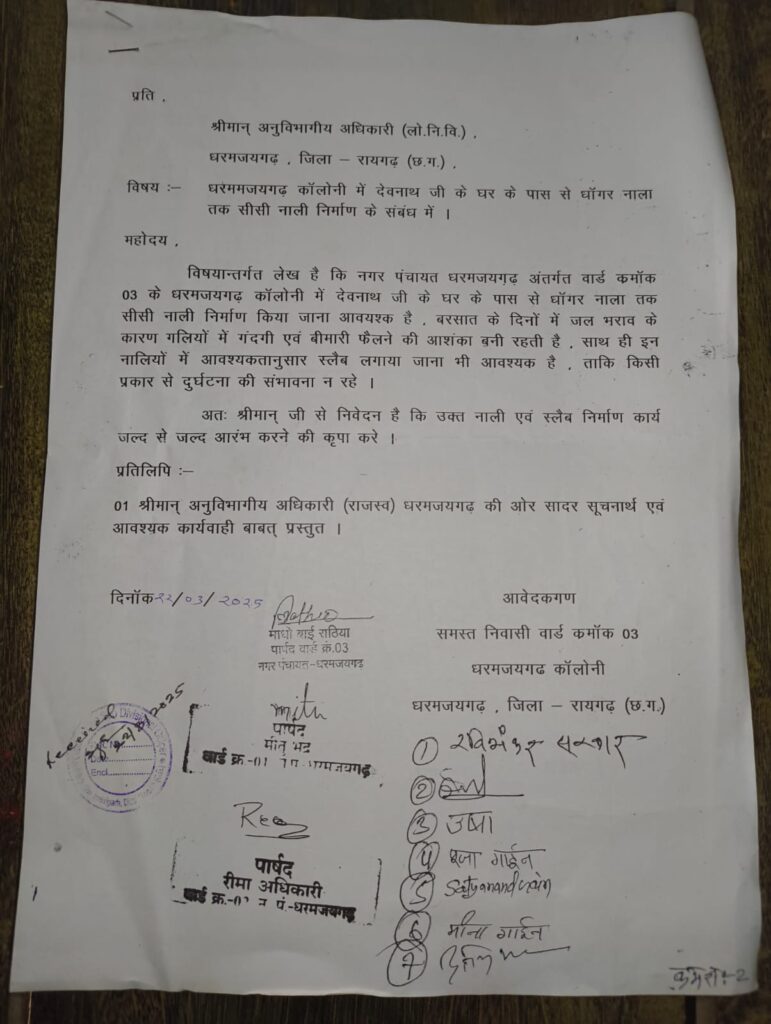 प्रति ,
श्रीमान् अनुविभागीय अधिकारी (लो.नि.वि.) ,
धरमजयगढ़ , जिला – रायगढ़ (छ.ग.) ,
विषय :– धरममजयगढ़ कॉलोनी में देवनाथ जी के घर के पास से घोंगर नाला
तक सीसी नाली निर्माण के संबंध में ।
महोदय ,
विषयान्तर्गत लेख है कि नगर पंचायत धरमजयगढ़ अंतर्गत वार्ड कमॉक
03 के धरमजयगढ़ कॉलोनी में देवनाथ जी के घर के पास से घोंगर नाला तक
सीसी नाली निर्माण किया जाना आवयश्क है , बरसात के दिनों में जल भराव के
कारण गलियों में गंदगी एवं बीमारी फैलने की आशंका बनी रहती है , साथ ही इन
नालियों में आवश्यकतानुसार स्लैब लगाया जाना भी आवश्यक है , ताकि किसी
प्रकार से दुर्घटना की संभावना न रहे ।
अतः श्रीमान् जी से निवेदन है कि उक्त नाली एवं स्लैब निर्माण कार्य
जल्द से जल्द आरंभ करने की कृपा करे ।
प्रतिलिपि :–
01 श्रीमान् अनुविभागीय अधिकारी (राजस्व) धरमजयगढ़ की ओर सादर सूचनार्थ एवं
आवश्यक कार्यवाही बाबत् प्रस्तुत ।
दिनॉक 22/03/2025
आवेदकगण
माधो बाई राठिया
समस्त निवासी वार्ड कमॉक 03
पार्षद वार्ड क्रं.03
नगर पंचायत-धरमजयगढ़
धरमजयगढ कॉलोनी
धरमजयगढ़ , जिला – रायगढ़ (छ.ग.)
Received
Mitu
पार्षद
वार्ड क्र.-01 धरमजयगढ़
1
2
3 उषा
4 गाईन
5
6 मीना गाईन
7
पार्षद
रीमा अधिकारी
वार्ड क्र. पं.-धरमजयगढ़